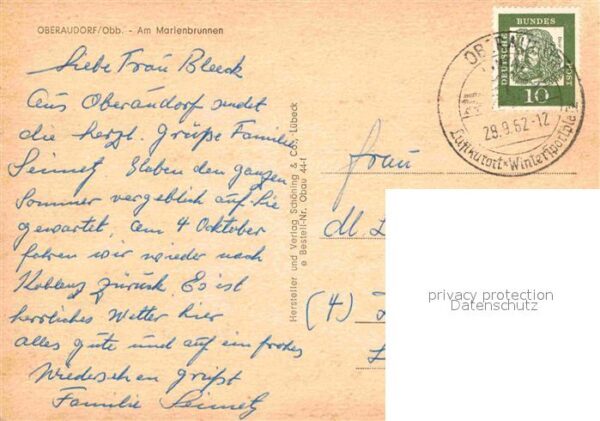 OBERAUDORF/Obb. - Am Marienbrunnen
Liebe Frau Bleeck
Aus Oberaudorf sendet
die herzl. Grüße Familie
Haben den ganzen
Sommer vergeblich auf Sie
gewartet, am 4 Oktober
fahren wir wieder nach
Koblenz zurück. Es ist
herrliches Wetter hier
alles gute und auf ein frohes
Wiedersehen grüßt
Familie
Hersteller und Verlag Schöning & Co., Lübeck
Bestell-Nr. Obau 44-t
DEUTSCHE
BUNDES
POST
10
28.9.62-12
Luftkurort * Wintersportplatz
Frau
(4)
privacy protection
Datenschutz